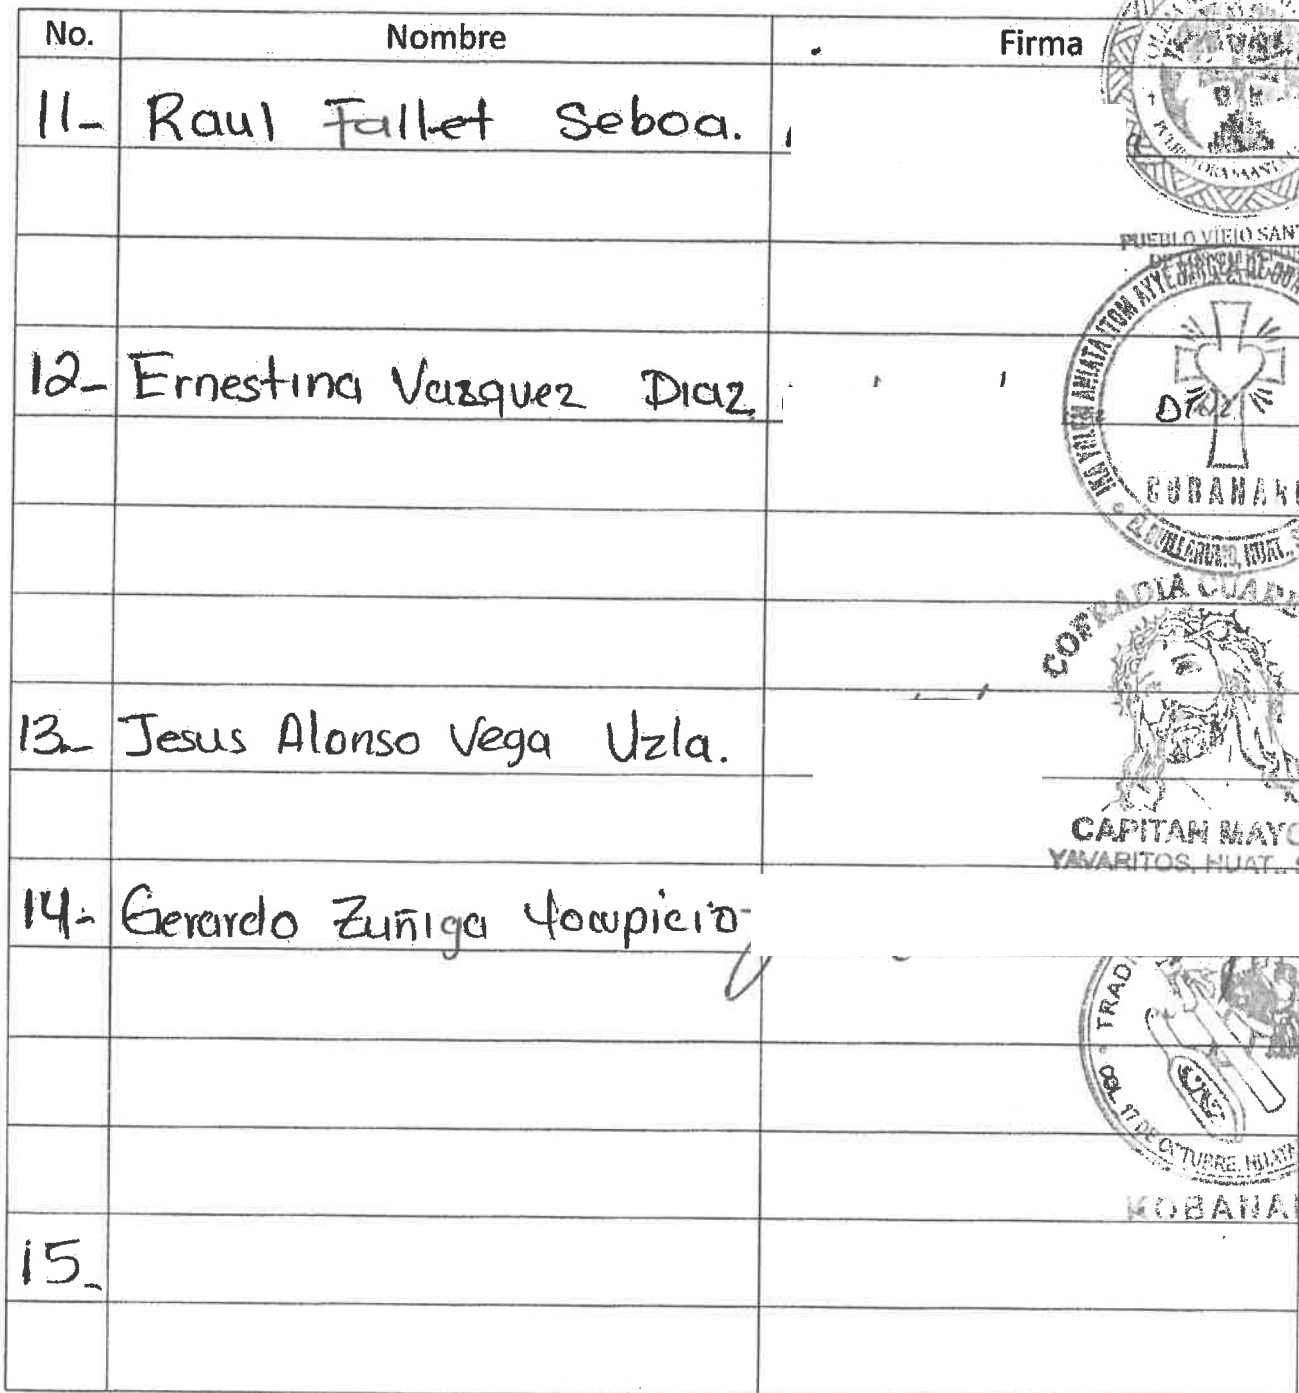 No. Nombre Firma
11- Raul Fallet Seboa.
PUEBLO VIEJO SAN
12- Ernestina Vazquez Diaz
COBANARO
COFRADIA CUAR
13- Jesus Alonso Vega Uzla.
CAPITAN MAYO
YAVARITOS, HUAT., S
14- Gerardo Zuñiga Yocupicio
TRAD
COL. 17 DE OCTUBRE, HUATA
KOBANA
15-